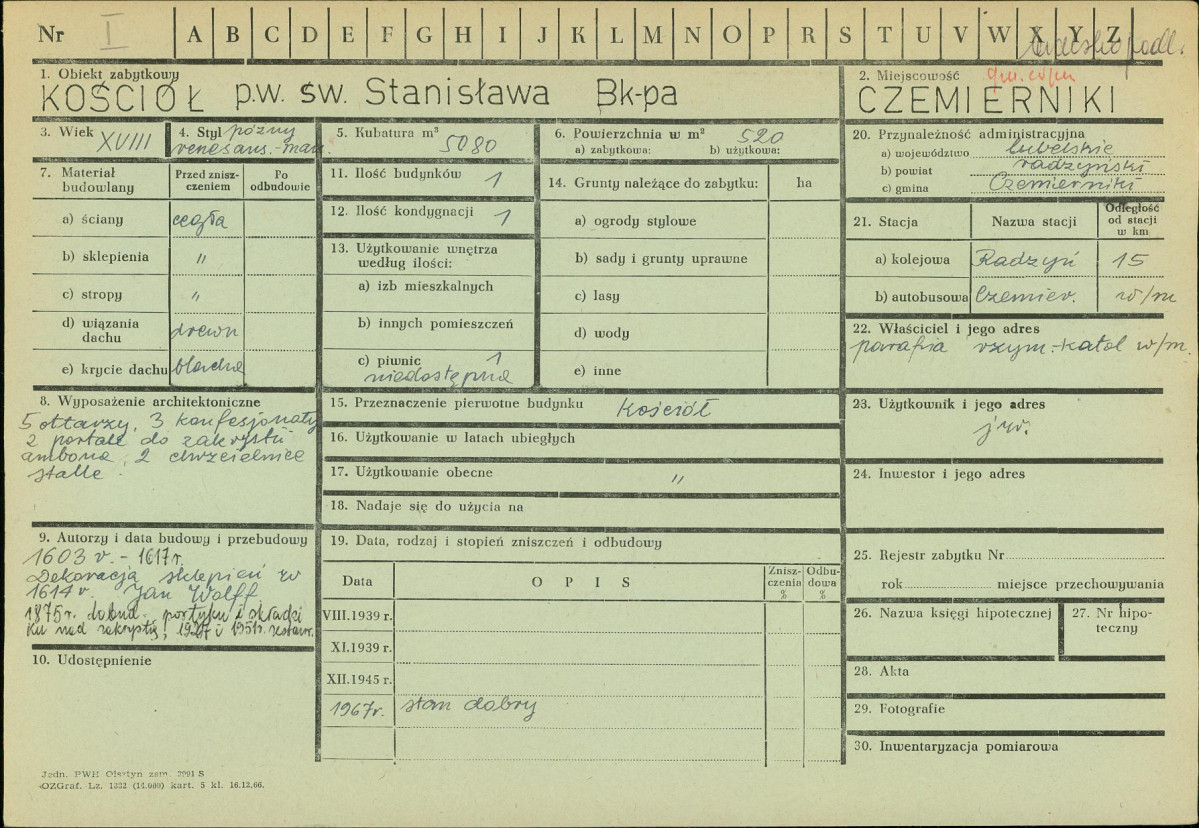 Nr I A B C D E F G H I J K L M N O P R S T U V W X Y Z
podl.
1. Obiekt zabytkowy
KOŚCIÓŁ p.w. św. Stanisława Bk-pa
2. Miejscowość
CZEMIERNIKI
3. Wiek XVIII
4. Styl późny
renesans.-man.
5. Kubatura m³ 5080
6. Powierzchnia w m² 520
a) zabytkowa: b) użytkowa:
7. Materiał budowlany
Przed zniszczeniem
Po odbudowie
a) ściany cegła
b) sklepienia "
c) stropy "
d) wiązania dachu drewn
e) krycie dachu blacha
8. Wyposażenie architektoniczne
5 ołtarzy, 3 konfesjonały
2 portale do zakrystii
ambona, 2 chrzcielnice
stalle
9. Autorzy i data budowy i przebudowy
1603 r. - 1617 r.
Dekoracja sklepień w
1614 r. Jan Wolff
1875 r. dobud. portyku i
nad zakrystią, i 1951r. restaur.
10. Udostępnienie
11. Ilość budynków 1
12. Ilość kondygnacji 1
13. Użytkowanie wnętrza
według ilości:
a) izb mieszkalnych
b) innych pomieszczeń
c) piwnic 1
niedostępna
14. Grunty należące do zabytku: ha
a) ogrody stylowe
b) sady i grunty uprawne
c) lasy
d) wody
e) inne
15. Przeznaczenie pierwotne budynku kościół
16. Użytkowanie w latach ubiegłych
17. Użytkowanie obecne "
18. Nadaje się do użycia na
19. Data, rodzaj i stopień zniszczeń i odbudowy
Data OPIS Zniszczenia % Odbudowa %
VIII.1939 r.
XI.1939 r.
XII.1945 r.
1967r. stan dobry
20. Przynależność administracyjna
a) województwo lubelskie
b) powiat radzyński
c) gmina Czemierniki
21. Stacja Nazwa stacji Odległość od stacji w km
a) kolejowa Radzyń 15
b) autobusowa Czemier. w/m
22. Właściciel i jego adres
parafia rzym.-katol w/m.
23. Użytkownik i jego adres
jw.
24. Inwestor i jego adres
25. Rejestr zabytku Nr
rok miejsce przechowywania
26. Nazwa księgi hipotecznej
27. Nr hipoteczny
28. Akta
29. Fotografie
30. Inwentaryzacja pomiarowa
Jedn. PWH Olsztyn zam. 2091 S
OZGraf. Lz. 1332 (14.000) kart. 5 kl. 16.12.66.